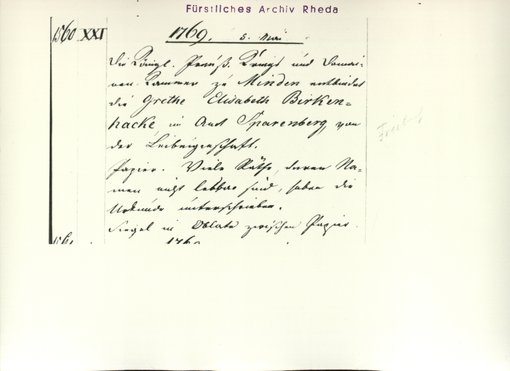 Fürstliches Archiv Rheda
1560 XXI 1769. 5. Mai
Die Königl. Preuß. Kriegs und Domai-
nen Kammer zu Minden entbindet
die Grethe Elisabeth Birken-
hacke im Amt Sparenberg, von
der Leibeigenschaft.
Papier. Viele Räthe, deren Na-
men nicht lesbar sind, haben die
Urkunde unterschrieben.
Siegel in Oblate zwischen Papier.
1769